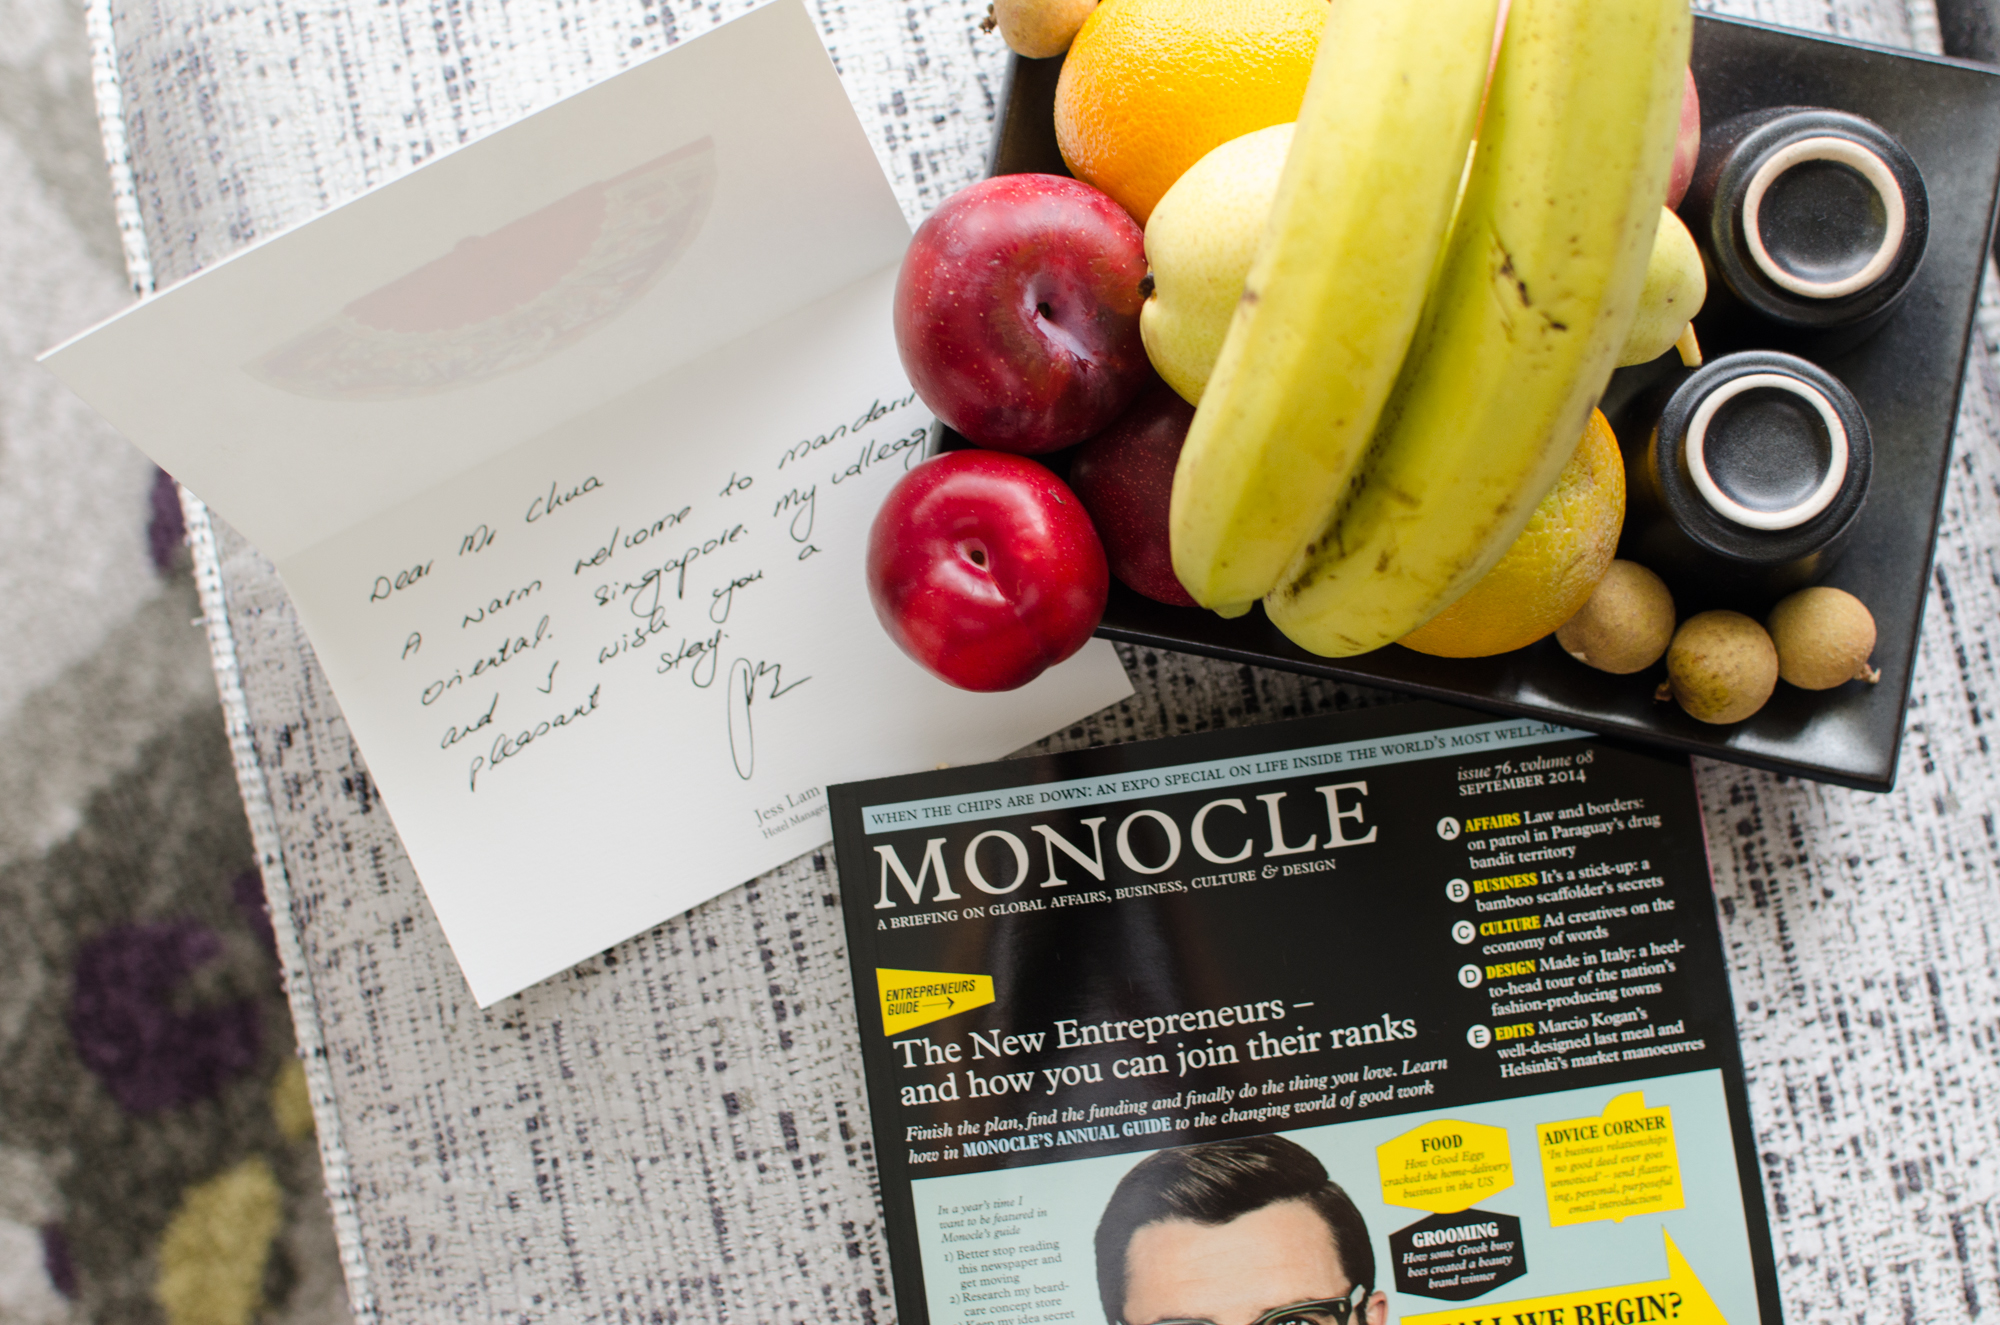 Dear Mr Chua
A warm welcome to mandarin
oriental. Singapore. My
and I wish you a
pleasant stay.
Jess Lam
Hotel Manager
WHEN THE CHIPS ARE DOWN: AN EXPO SPECIAL ON LIFE INSIDE THE WORLD'S MOST
MONOCLE
A BRIEFING ON GLOBAL AFFAIRS, BUSINESS, CULTURE & DESIGN
issue 76. volume 08
SEPTEMBER 2014
A AFFAIRS Law and borders:
on patrol in Paraguay's drug
bandit territory
B BUSINESS It's a stick-up: a
bamboo scaffolder's secrets
C CULTURE Ad creatives on the
economy of words
D DESIGN Made in Italy: a heel-
to-head tour of the nation's
fashion-producing towns
E EDITS Marcio Kogan's
well-designed last meal and
Helsinki's market manoeuvres
ENTREPRENEURS
GUIDE
The New Entrepreneurs –
and how you can join their ranks
Finish the plan, find the funding and finally do the thing you love. Learn
how in MONOCLE'S ANNUAL GUIDE to the changing world of good work
In a year's time I
want to be featured in
Monocle's guide
1) Better stop reading
this newspaper and
get moving
2) Research my beard-
care concept store
3) Keep my idea secret
FOOD
How Good Eggs
cracked the home-delivery
business in the US
ADVICE CORNER
"In business relationships
no good deed ever goes
unnoticed" – send flatter-
ing, personal, purposeful
email introductions
GROOMING
How some Greek busy
bees created a beauty
brand winner
WE BEGIN?